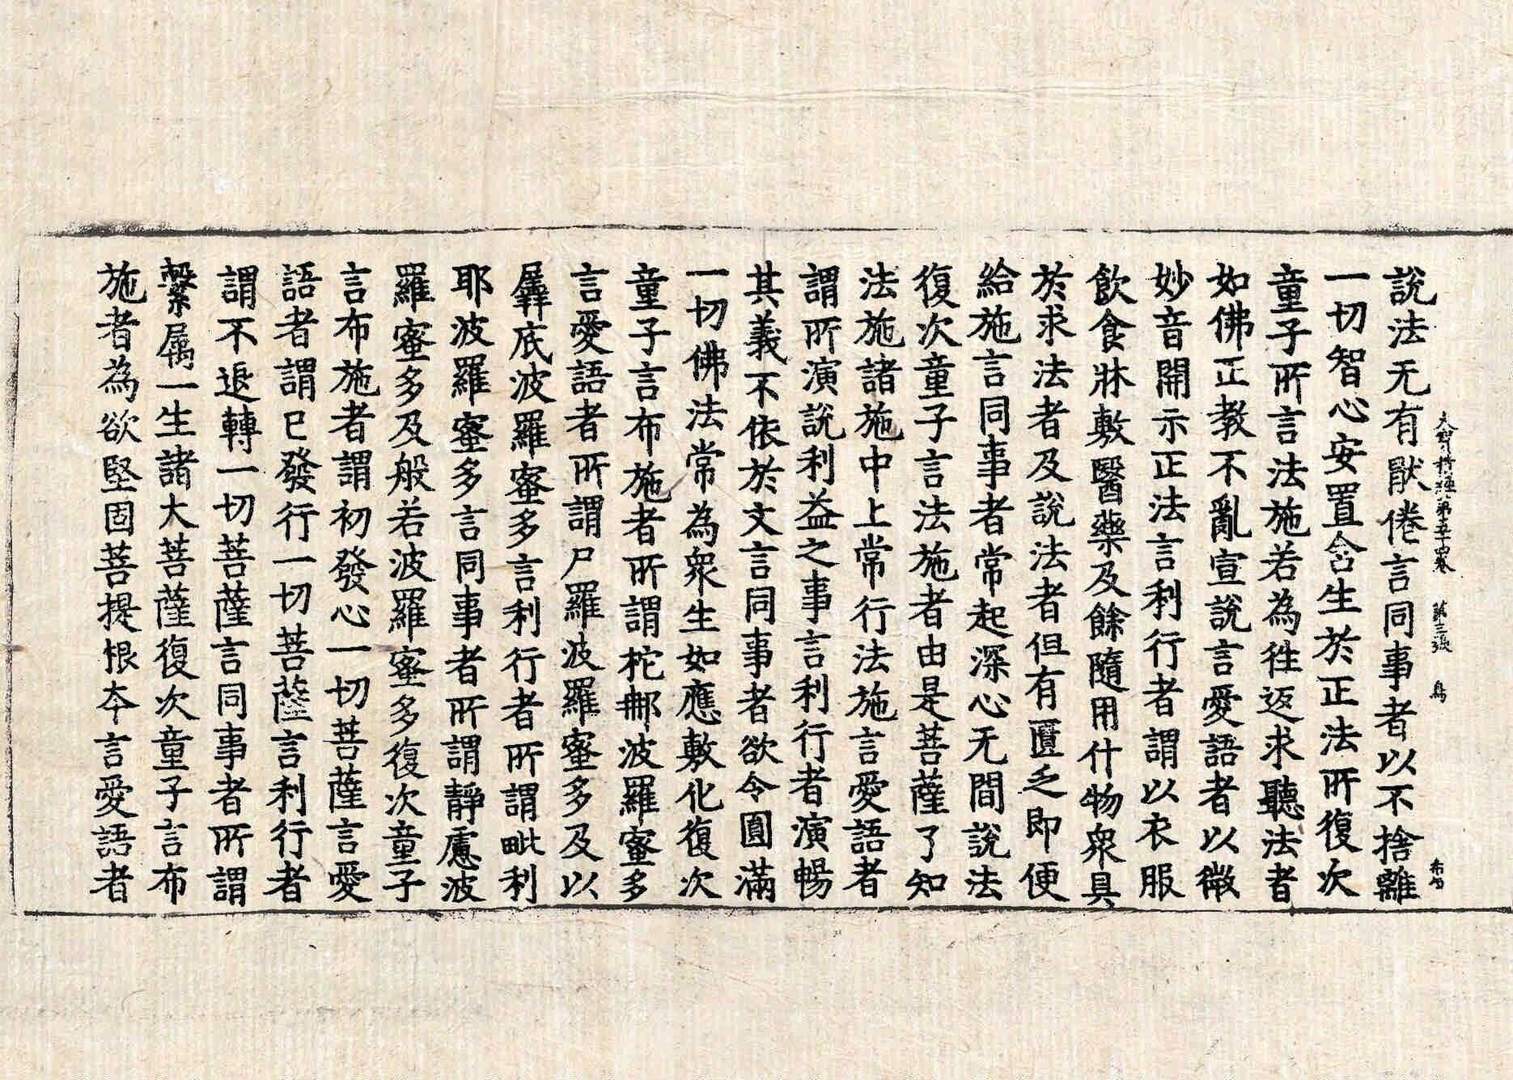 說法无有厭倦言同事者以不捨離
大寶積經第五十四卷 第三張 鳥
一切智心安置含生於正法所復次
童子所言法施若為往返求聽法者
如佛正教不亂宣說言愛語者以微
妙音開示正法言利行者謂以衣服
飲食牀敷醫藥及餘隨用什物眾具
於求法者及說法者但有匱乏即便
給施言同事者常起深心无間說法
復次童子言法施者由是菩薩了知
法施諸施中上常行法施言愛語者
謂所演說利益之事言利行者演暢
其義不依於文言同事者欲令圓滿
一切佛法常為眾生如應敷化復次
童子言布施者所謂柁那波羅蜜多
言愛語者所謂尸羅波羅蜜多及以
羼底波羅蜜多言利行者所謂毗利
耶波羅蜜多言同事者所謂靜慮波
羅蜜多及般若波羅蜜多復次童子
言布施者謂初發心一切菩薩言愛
語者謂已發行一切菩薩言利行者
謂不退轉一切菩薩言同事者所謂
繫属一生諸大菩薩復次童子言布
施者為欲堅固菩提根夲言愛語者